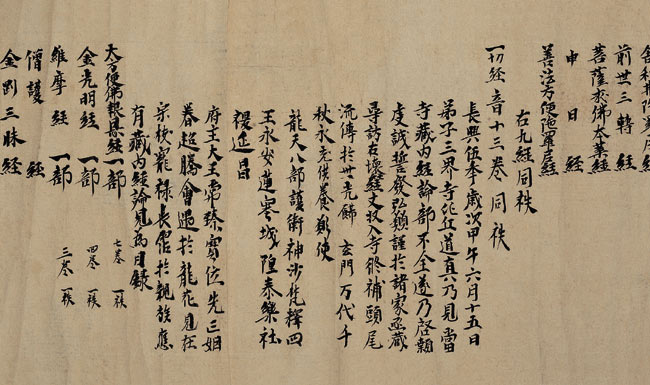 前世三轉経
菩薩求佛本業経
申日経
善法方便陁羅尼経
右九経同袟
一切経音十三卷同袟
長興伍年歲次甲午六月十五日
弟子三界寺比丘道真乃見當
寺藏内経論部不全遂乃啓顙
虔誠誓發弘願謹於諸家函藏
尋訪古壞経文収入寺修補頭尾
流傳於世光飾玄門万代千
秋永充供養願使
龍天八部護衛神沙梵釋四
王永安蓮塞城隍泰樂社
稷延昌
府主大王常臻寳位先亡姻
眷超騰會遇於龍花見在
宗枝寵祿長霑於親族應
有藏内経論見為目録
大方便佛報恩経一部 七卷 一袟
金光明経一部 四卷 一袟
維摩経一部 三卷 一袟
僧護経
金剛三昧経